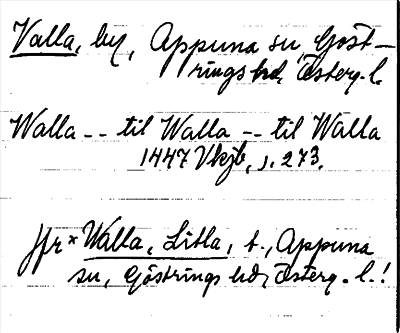 Valla, by, Appuna sn, Göst-
rings hd, Österg. l.
Walla -- til Walla -- til Walla
1447 Vkjb, s. 273.
Jfr * Walla, Litla, t., Appuna
sn, Göstrings hd, Österg. l.!